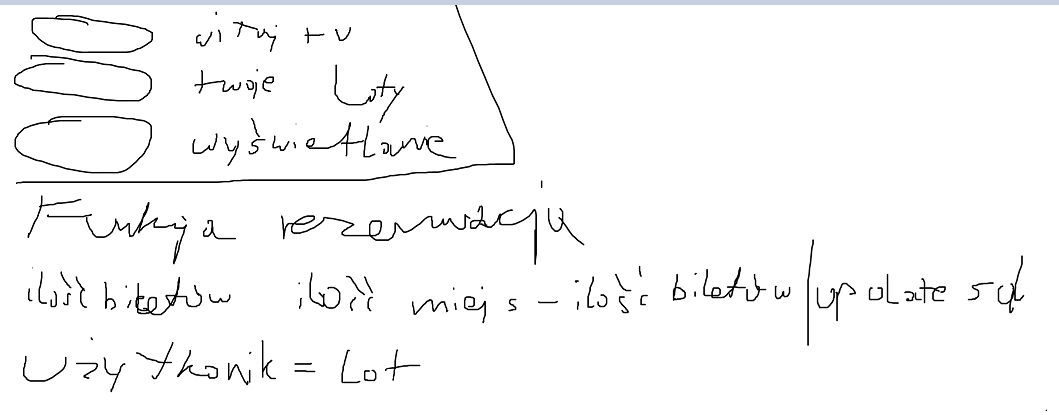 witaj tu
twoje Loty
wyświetlanie
Funkcja rezerwacja
ilość biletów ilość miejs - ilość biletów / update sql
użytkonik = Lot